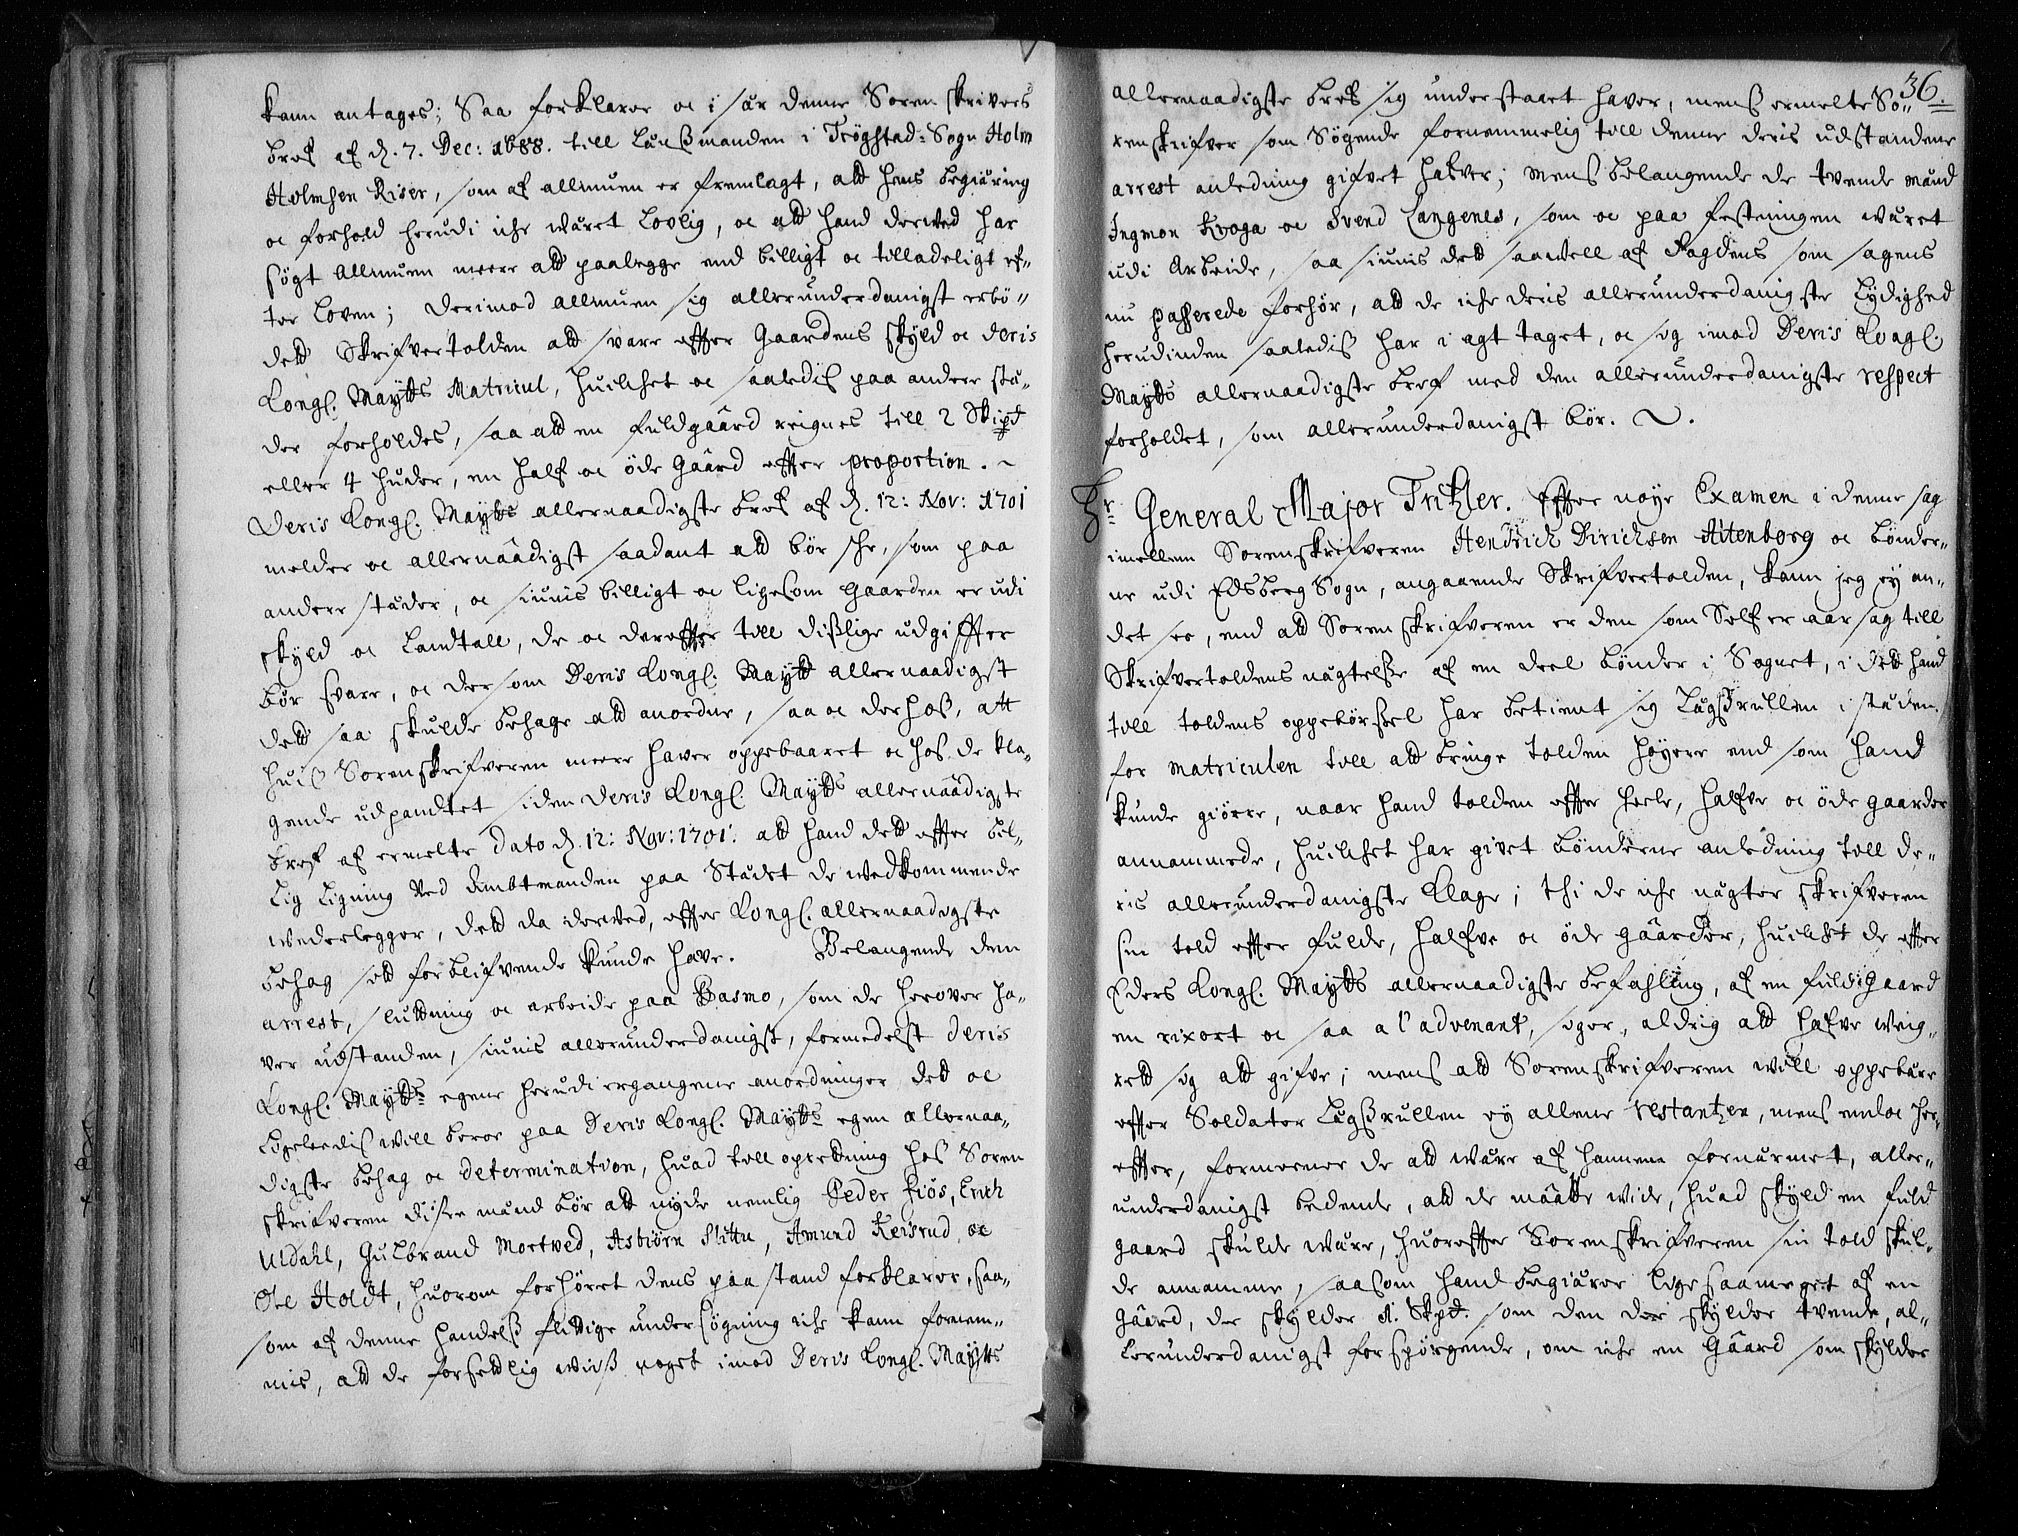 kann antages; Saa forklarer oc i sær denne Sorenskrivers
bref af d. 7. Dec: 1688. till Lænßmanden i Trøgstad-Sogn Holm
Holmsen Riser, som af allmuen er fremlagt, att hans begiæring
oc forhold herudi iche wæret Lovlig, oc att hand derved har
søgt Allmuen meere att paalegge end billigt oc tilladeligt ef-
ter Loven; derimod allmuen sig allerunderdanigst erbø-
dett Skrifvertolden att svare effter Gaardens skyld oc deris
Kongl. Maytts Matricul, huilchet oc saaledis paa andere stæ-
der forholdes, saa att en fuldgaard reignes till 2 Skipd
eller 4 huder, en half oc øde Gaard effter proportion. ~
Deris Kongl. Maytts allernaadigste bref af d. 12: Nov: 1701
melder oc allernaadigst saadant att bør skee, som paa
andere stæder, oc siunis billigt oc ligesom Gaarden er udi
skyld oc Landtall, de oc dereffter till dißlige udgiffter
bør svare, oc dersom Deris Kongl. Maytt allernaadigst
dett saa skulde behage att anordne, saa oc derhoß, att
huiß Sorenskrifveren meere haver oppebaaret oc hos de kla-
gende udpandtet siden Deris Kongl. Maytts allernaadigste
bref af ermelte Dato d. 12: Nov: 1701. att hand dett effter bil-
lig Ligning ved Ambtmanden paa Stædet de wedkommende
wederlegger, dett da derved, effter Kongl. allernaadigste
behag sitt forblifvende kunde have. Belangende den
arrest, sluttning oc arbeide paa Basmo, som de herover ha-
ver udstanden, siunis allerunderdanigst, formedelst Deris
Kongl. Maytts egene herudi ergangene anordninger dett oc
ligeledis will beroe paa Deris Kongl. Maytts egen allernaa-
digste behag oc determination, huad till oprettning hos Soren
skrifveren disse mænd bør att nyde nemlig Peder Fiøs, Erich
Uldahl, Gulbrand Mortved, Asbiørn Slittu, Amund Keisrud, oc
Ole Holdt, huorom forhøret dens paastand forklarer, saa-
som af denne handels flittige undersøgning iche kann fornem-
mis, att de forsettlig wiß noget imod Deris Kongl. Maytts
36.
allernaadigste bref sig understaaet haver, mens ermelte So-
renskrifver som Søgende fornemmelig till denne deris udstandene
arrest anledning gifvet hafver; Mens belangende de tvende mænd
Ingmon Kroga oc Svend Langenes, som oc paa festningen wæret
udi Arbeide, saa siunis dett saawell af Fogdens som sagens
nu passerede forhør, att de iche deris allerunderdanigste Lydighed
herudinden saaledis har i agt taget, oc sig imod Deris Kongl.
Maytts allernaadigste bref med den allerunderdanigste respect
forholdet, som allerunderdanigst bør.
Hr. General Major Tritzler. Effter nøye Examen i denne sag
imellem Sorenskrifveren Hendrich Dirichsen Altenborg oc bønder-
ne udi Edsberg Sogn, angaaende Skrifvertolden, kann jeg ey an-
det see, end att Sorenskrifveren er den som Self er aarsag till
Skrifvertoldens nægtelse af en deel bønder i Sognet, i dett hand
till toldens oppebørsel har betient sig Lægsrullen i stæden
for matriculen till att bringe tolden høyere end som hand
kunde giøre, naar hand tolden effter heele, halfve oc øde gaarder
annammede, huilchet har givet bønderne anledning till de-
ris allerunderdanigste klage; thi de iche nægter skrifveren
sin told effter fulde, halfve oc øde gaarder, huilchet de effter
Eders Kongl. Maytts allernaadigste befahling, af en fuld gaard
en rixort oc saa a l'advenant, siger, aldrig att hafve weig-
rett sig att gifve; mens att Sorenskrifveren will oppebære
effter Soldater Lægsrullen ey allene restantzen, mens endoc her-
effter, formeener de att wære af hannem fornærmet, aller-
underdanigst bedende, att de maatte wide, huad skyld en fuld
gaard skulde wære, huoreffter Sorenskrifveren sin told skul-
de annamme, saasom hand begiærer ligesaameget af en
Gaard, der skylder 1. Skpd. som den der skylder tvende, al-
lerunderdanigst forspørgende, om iche en Gaard som skylder